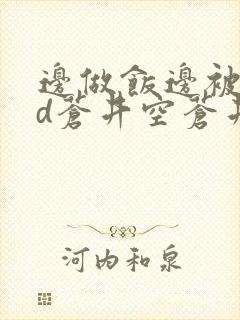 邊做飯邊被
d蒼井空蒼井
河内和泉